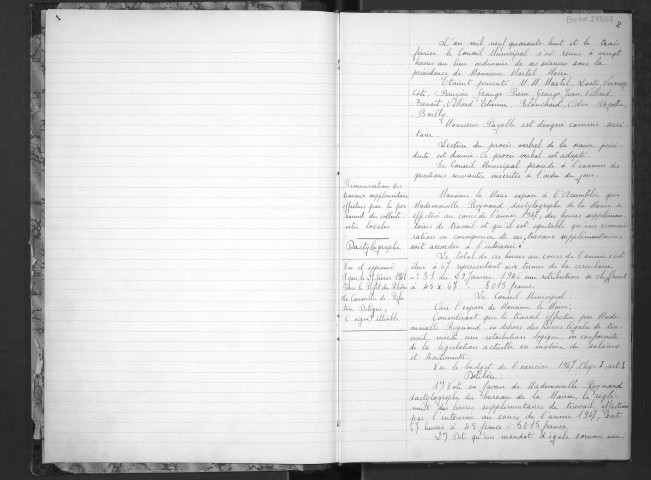 1
2
L'an mil neuf quarante huit et le trois
février le Conseil Municipal s'est réuni à vingt
heures au lieu ordinaire de ses séances sous la
présidence de Monsieur Martel, Maire.
Etaient présents : M.M. Martel,
Côte, Bruyère, Grange Pierre, Grange Jean, Villard
Benoît, Villard Etienne, Blanchard,
Bailly
Monsieur Payolle est désigné comme secré-
taire.
Lecture du procès verbal de la séance précé-
dente est donnée ce procès verbal est adopté.
Le Conseil Municipal procède à l'examen des
questions suivantes inscrites à l'ordre du jour.
Rémunération des
travaux supplémentaires
effectués par le per
sonnel des collecti-
vités locales
Dactylographe
Vu et approuvé
Lyon, le 1948
Pour le Préfet du Rhône
Le Conseiller de Préfec
ture Délégué,
signé illisible
Monsieur le Maire expose à l'Assemblée que
Mademoiselle Reynaud, dactylographe de la Mairie a
effectué au cours de l'année 1947, des heures supplémen-
taires de travail et qu'il est équitable qu'une rémuné-
ration en conséquence de ces travaux supplémentaires
soit accordée à l'intéressée.
Le total de ces heures au cours de l'année s'est
élevé à 67 représentant aux termes de la circulaire
n° 31 du 29 Janvier 1946 une rétribution se chiffrant
à 45 x 67 = 3.015 francs.
Le Conseil Municipal :
Ouï l'exposé de Monsieur le Maire,
Considérant que le travail effectué par Made-
moiselle Reynaud en dehors des heures légales de tra-
vail, mérite une rétribution logique, en conformité
de la législation actuelle en matière de salaires
et traitements.
Vu le budget de l'exercice 1947, Chap. 1, art 3
Délibère :
1°) Vote en faveur de Mademoiselle Reynaud
dactylographe du bureau de la Mairie, le règle-
ment des heures supplémentaires de travail, effectuées
par l'intéressée au cours de l'année 1947, soit
67 heures à 45 francs = 3.015 francs.
2°) Dit qu'un mandat d'égale somme sera